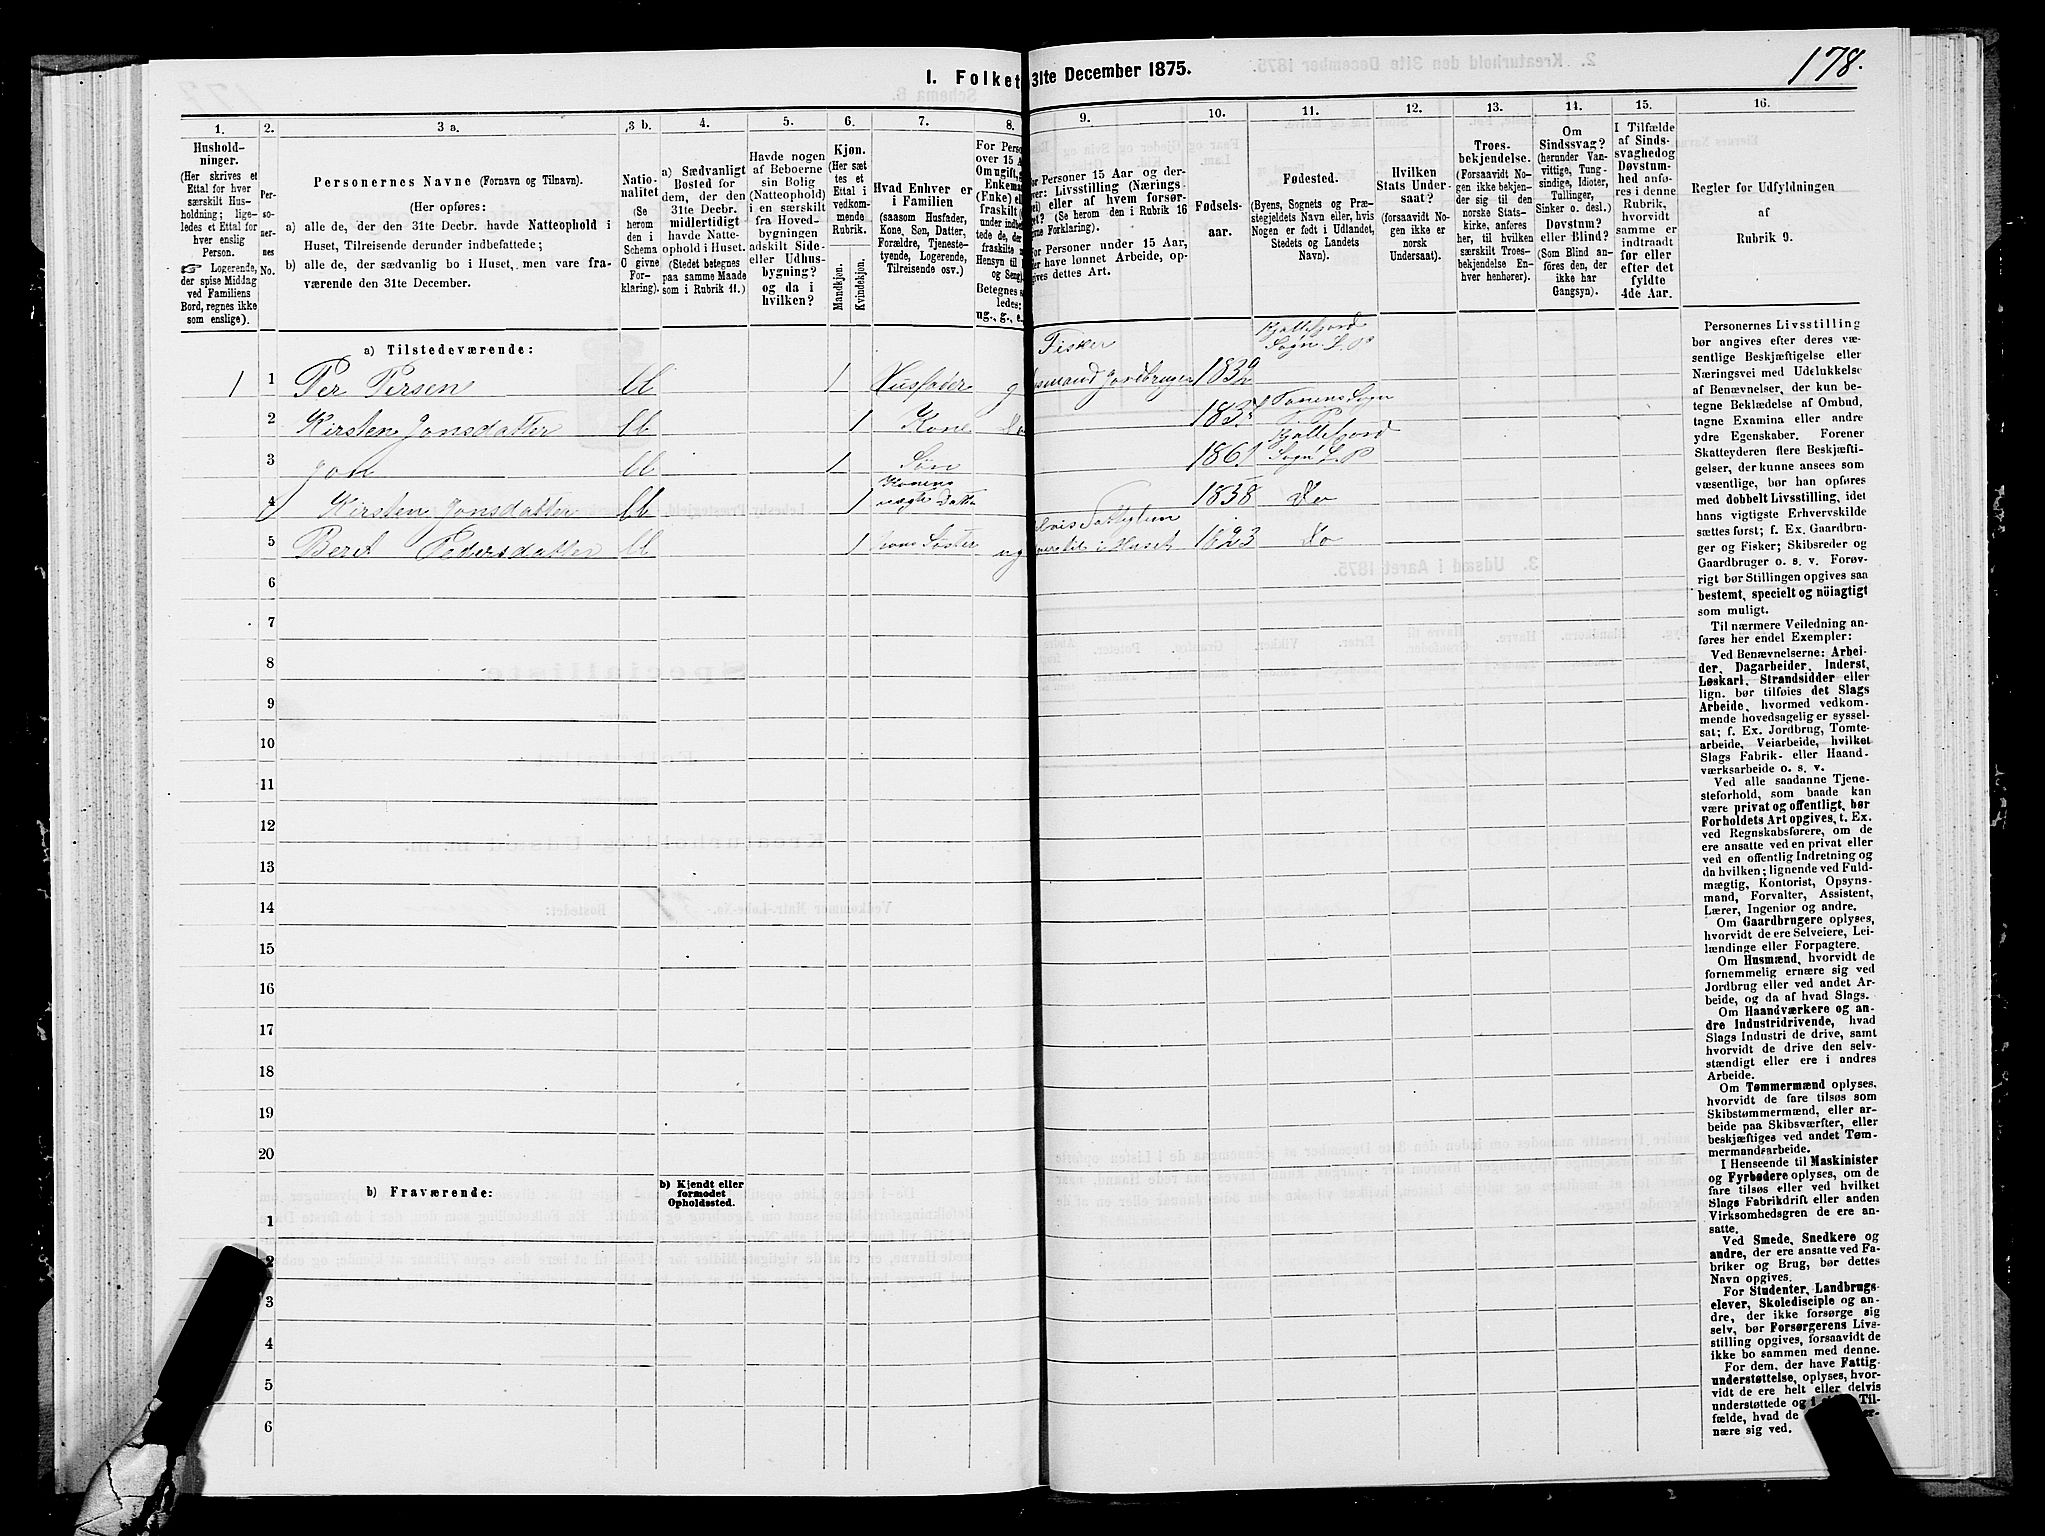 178.
I. Folket
31te December 1875.
1.
2.
3 a.
3 b.
4.
5.
6.
7.
8.
9.
10.
11.
12.
13.
14.
15.
16.
Hushold-
ninger.
(Her skrives et
Ettal for hver
særskilt Hus-
holdning; lige-
ledes et Ettal for
hver enslig
Person.
☞ Logerende,
der spise Middag
ved Familiens
Bord, regnes ikke
som enslige).
Per-
so-
ner-
nes
No.
Personernes Navne (Fornavn og Tilnavn).
(Her opføres:
a) alle de, der den 31te Decbr. havde Natteophold i
Huset, Tilreisende derunder indbefattede;
b) alle de, der sædvanlig bo i Huset, men vare fra-
værende den 31te December.
Natio-
nalitet
(Se
herom
den i
Schema
O givne
For-
klaring).
a) Sædvanligt
Bosted for
dem, der den
31te Decbr.
midlertidigt
havde Natte-
ophold i Huset.
(Stedet betegnes
paa samme Maade
som i Rubrik 11.)
Havde nogen
af Beboerne
sin Bolig
(Natteophold)
i en særskilt
fra Hoved-
bygningen
adskilt Side-
eller Udhus-
bygning?
og da i
hvilken?
Kjøn.
(Her sæt-
tes et
Ettal i
vedkom-
mende
Rubrik.
Mandkjøn.
Kvindekjøn.
Hvad Enhver er
i Familien
(saasom Husfader,
Kone, Søn, Datter,
Forældre, Tjeneste-
tyende, Logerende,
Tilreisende osv.)
For Perso
over 15 Aa
Om ugift, g
Enkema
(Enke) ell
fraskilt (
under indbe
tede de, de
fraskilte
Hensyn til
og Seng
Betegnes s
ledes:
ug., g., e.
For Personer 15 Aar og der-
over: Livsstilling (Nærings-
vei) eller af hvem forsør-
get? (Se herom den i Rubrik 16
givne Forklaring).
For Personer under 15 Aar,
der have lønnet Arbeide, op-
gives dettes Art.
Fødsels-
aar.
Fødested.
(Byens, Sognets og Præ-
stegjeldets Navn eller, hvis
Nogen er født i Udlandet,
Stedets og Landets
Navn).
Hvilken
Stats Under-
saat?
(forsaavidt No-
gen ikke er
norsk
Undersaat).
Troes-
bekjendelse.
(Forsaavidt No-
gen ikke bekjen-
der sig til den
norske Stats-
kirke, anføres
her, til hvilken
særskilt Troes-
bekjendelse En-
hver henhører).
Om
Sindssvag?
(herunder Van-
vittige, Tung-
sindige, Idioter,
Tullinger,
Sinker o. desl.)
Døvstum?
eller Blind?
(Som Blind an-
føres den, der
ikke har
Gangsyn).
I Tilfælde
af Sinds-
svaghed og
Døvstum-
hed anfø-
res i denne
Rubrik,
hvorvidt
samme er
indtraadt
før eller
efter det
fyldte
4de Aar.
Regler for Udfyldningen
af
Rubrik 9.
a) Tilstedeværende:
Fisker
Kjøllefjord
Sogn L. P
1 1 Per Persen 1 Husfader g Husmand Jordbruger 1832
2 Kirsten Jonsdatter 1 Kone Do Tanens Sogn
3 Jon 1 Søn 1861 Kjøllefjord Sogn L. P
Konens
4 Kirsten Jonsdatter 1 Datter 1858 Do
5 Beret Pedersdatter 1 hans Søster ug 1823 Do
6
7
8
9
10
11
12
13
14
15
16
17
18
19
20
b) Fraværende:
b) Kjendt eller
formodet
Opholdssted.
1
2
3
4
5
6
Personernes Livsstilling
bør angives efter deres væ-
sentlige Beskjæftigelse eller
Næringsvei med Udelukkelse
af Benævnelser, der kun be-
tegne Beklædelse af Ombud,
tagne Examina eller andre
ydre Egenskaber. Forener
Skatteyderen flere Beskjæfti-
gelser, der kunne ansees som
væsentlige, bør han opføres
med dobbelt Livsstilling, idet
hans vigtigste Erhvervskilde
sættes først; f. Ex. Gaardbru-
ger og Fisker; Skibsreder og
Gaardbruger o. s. v. Forøv-
rigt bør Stillingen opgives saa
bestemt, specielt og nöiagtigt
som muligt.
Til nærmere Veiledning an-
føres her endel Exempler:
Ved Benævnelserne: Arbei-
der, Dagarbeider, Inderst,
Løskarl, Strandsidder eller
lign. bør tilføies det Slags
Arbeide, hvormed vedkom-
mende hovedsagelig er syssel-
sat; f. Ex. Jordbrug, Tomte-
arbeide, Veiarbeide, hvilket
Slags Fabrik- eller Haand-
værksarbeide o. s. v.
Ved alle saadanne Tjene-
steforhold, som baade kan
være privat og offentligt, bør
Forholdets Art opgives, t. Ex.
ved Regnskabsførere, om de
ere ansatte ved en privat eller
ved en offentlig Indretning og
da hvilken; lignende ved Fuld-
mægtig, Kontorist, Opsyns-
mand, Forvalter, Assistent,
Lærer, Ingeniør og andre.
Om Gaardbrugere oplyses,
hvorvidt de ere Selveiere, Lei-
lændinge eller Forpagtere.
Om Husmænd, hvorvidt de
fornemmelig ernære sig ved
Jordbrug eller ved andet Ar-
beide, og da af hvad Slags.
Om Haandværkere og an-
dre Industridrivende, hvad
Slags Industri de drive, samt
hvorvidt de drive den selv-
stændigt eller ere i andres
Arbeide.
Om Tømmermænd oplyses,
hvorvidt de fare tilsøs som
Skibstømmermænd, eller ar-
beide paa Skibsværfter, eller
beskjæftiges ved andet Tøm-
mermandsarbeide.
I Henseende til Maskinister
og Fyrbødere oplyses, om de
fare tilsøs eller ved hvilket
Slags Fabrikdrift eller anden
Virksomhedsgren de ere an-
satte.
Ved Smede, Snedkere og
andre, der ere ansatte ved Fa-
briker og Brug, bør dettes
Navn opgives.
For Studenter, Landbrugs-
elever, Skoledisciple og an-
dre, der ikke forsørge sig
selv, bør Forsørgerens Livs-
stilling opgives, forsaavidt de
ikke bo sammen med denne.
For dem, der have Fattig-
understøttelse, oplyses, hvor-
vidt de ere helt eller delvis
understøttede og i Til-
fælde, hvad de
nære sig ved.